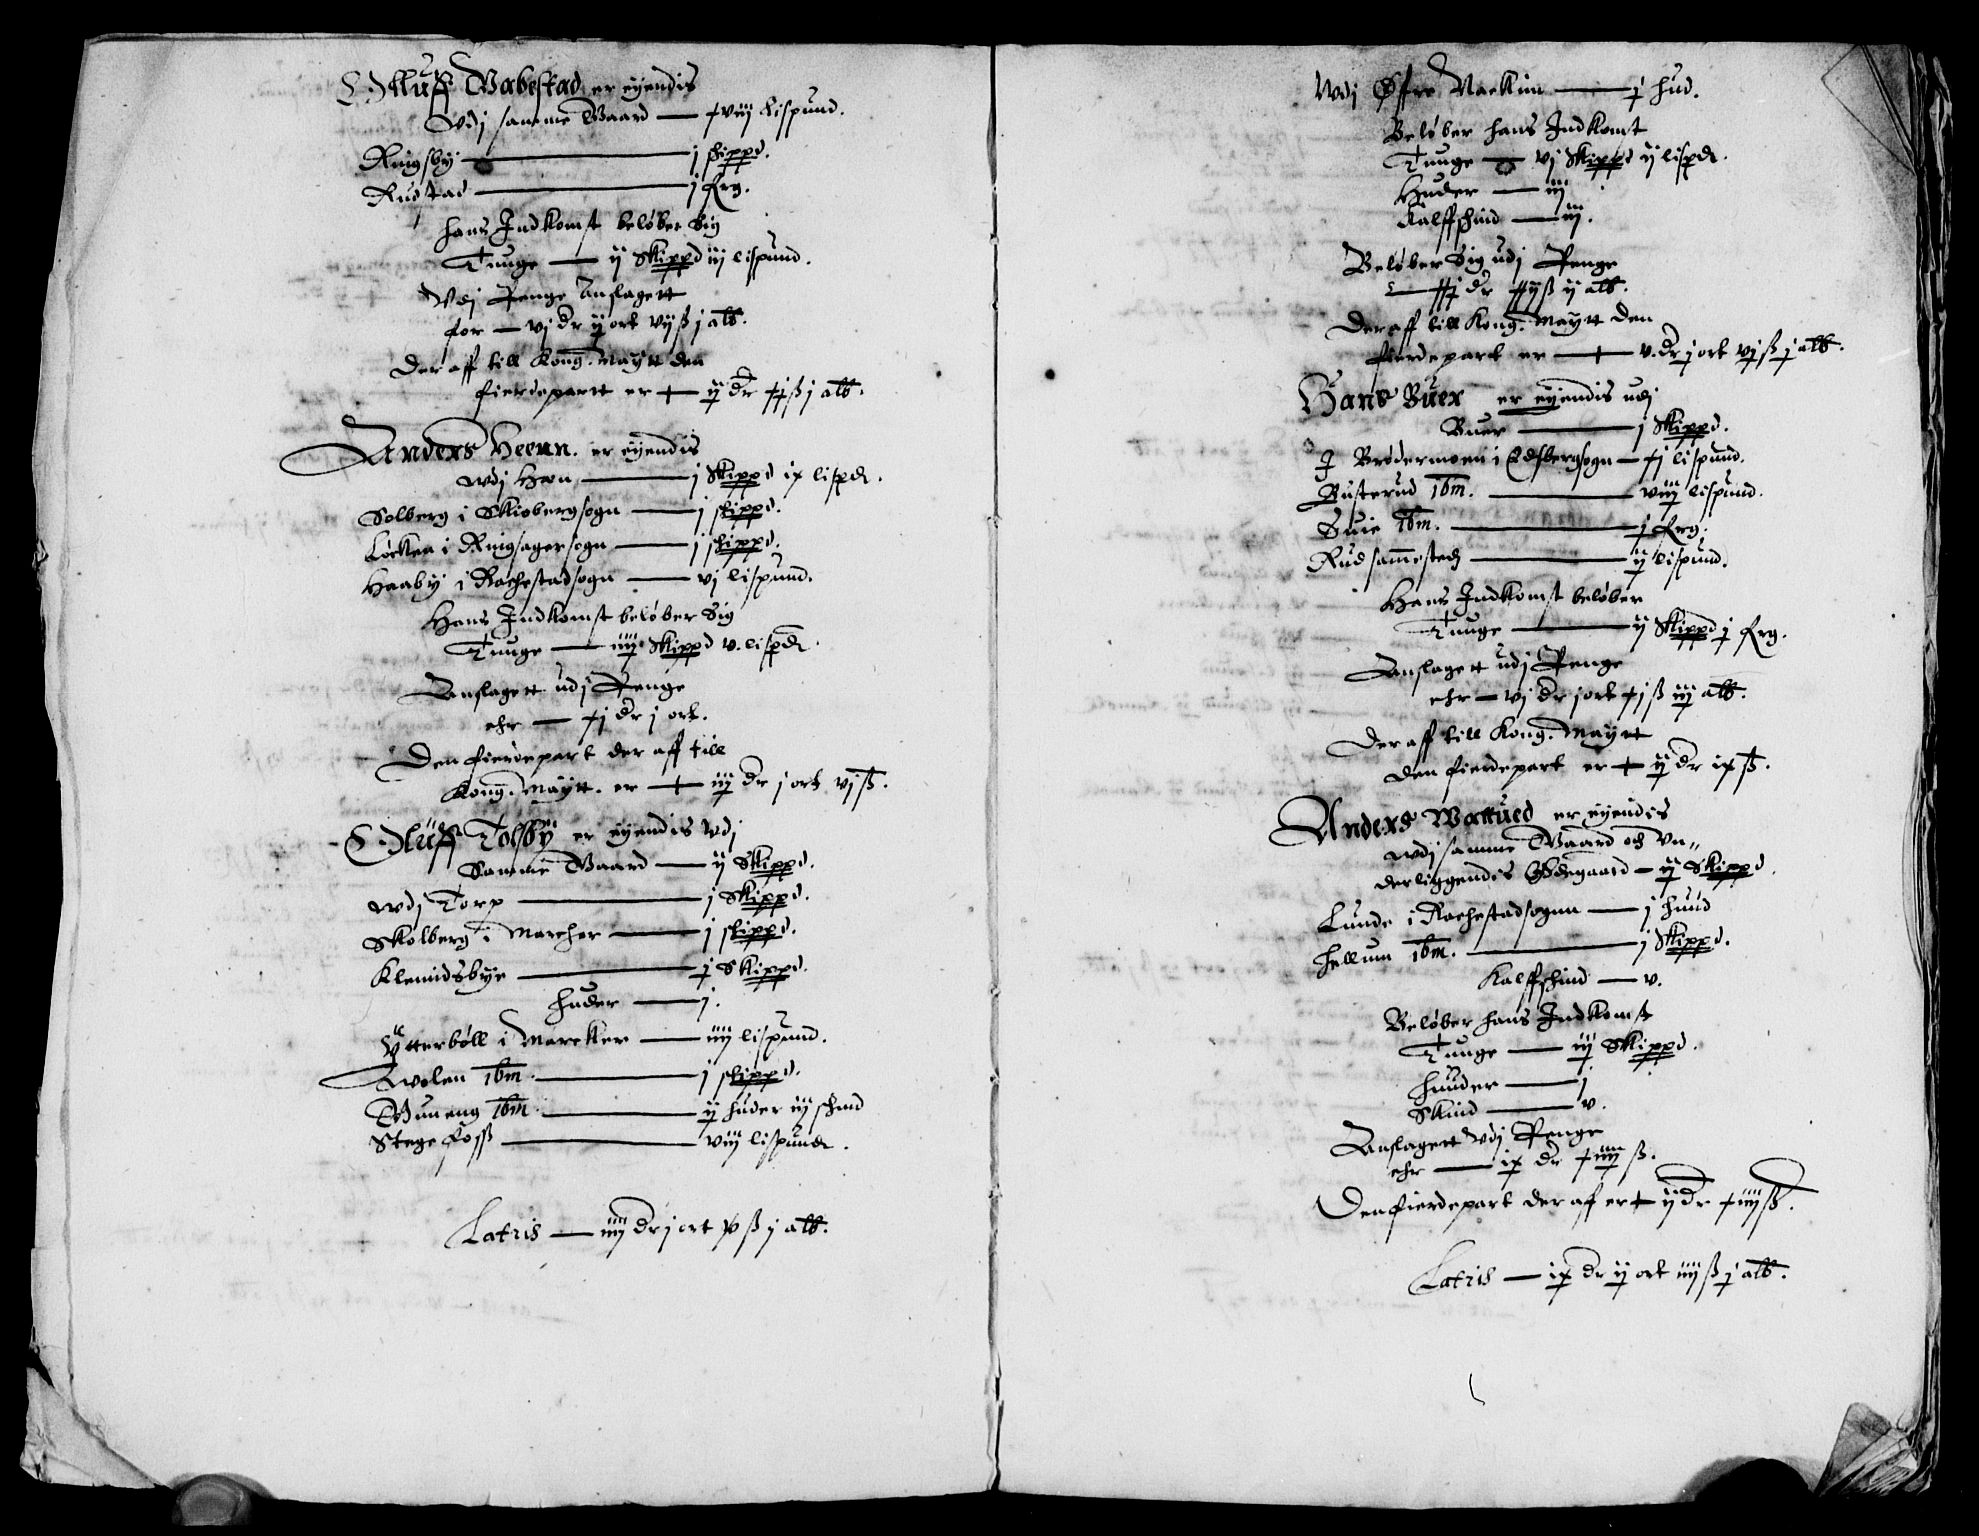 Olluff Wabestad er eyendis
udj samme Gaard — xviij lispund.
Ringsby — j skippd.
Rustad — j frg.
hans Indkomst beløber Sig
Tunge — ij Skippd iij lispund.
Vdj Penge Anslagett
for — vj dr ij ort vij ß j alb.
Der aff till Kong. Maytt den
fierdepartt er — ij dr xj ß j alb.
Anders Heenn. er eyendis
udj Hæn — j Skippd ix lispd.
Solberg i Skiebergsogn — j skippd.
Løcken i Ringsagersogn — j skippd.
Haaby i Rachestadsogn — vj lispund.
Hans Indkomst beløber Sig
Tunge — iiij Skippd v. lispd.
Anslagett udj Penge
ehr — xj dr j ort.
Den fierdepart der aff till
Kong. Maytt. er — iij dr j ort vj ß.
Olluff Tolsby er eyendis udj
Samme Gaard — ij Skippd.
udj Torp — j Skippd.
Skolberg i Marcher — j skippd.
Klemidsbye — j Skippd.
huder — j.
Ytterbøll i Marcker — iiij lispund.
Wolen ibm. — j skippd.
Gruneng ibm. — ij huder iij skind
Stegefoss — viij lispund.
Latris — iiij dr j ort x ß j alb.
Vdj Øffre Naekim — j hud.
Beløber hans Indkomt
Tunge — vj Skippd ij lispd.
Huder — iij
Kalffskind — iij.
Beløber Sig udj Penge
— xxj dr xxij ß ij alb.
Der aff till Kong. Maytt den
fierdepart er — v. dr j ort vj ß j alb.
Hans Buer er eyendis udj
Buer — j Skippd.
J Brødermoen i Edsbergsogn — xj lispund.
Busterud ibm. — viij lispund.
Suie ibm. — j frg.
Rud sammested — ij lispund.
Hans Indkomst beløber
Tunge — ij Skippd j frg.
Anslagett udj Penge
ehr — vj dr j ort xj ß iij alb.
Der aff till Kong. Maytt
den fierdepart er — ij dr ix ß.
Anders Wattued er eyendis
udj samme Gaard och un„
derliggendis Ødegaard — ij Skippd.
Lunde i Rachestadsogn — j huud
Hellum ibm. — j Skippd.
Kalffskind — v.
Beløber hans Indkomst
Tunge — iij Skippd.
huder — j
Skind — v.
Anslagett Vdj Penge
ehr — ix dr xiiij ß.
Den fierdepart der af er — ij dr xiiij ß.
Latris — ix dr ij ort iiij ß j alb.